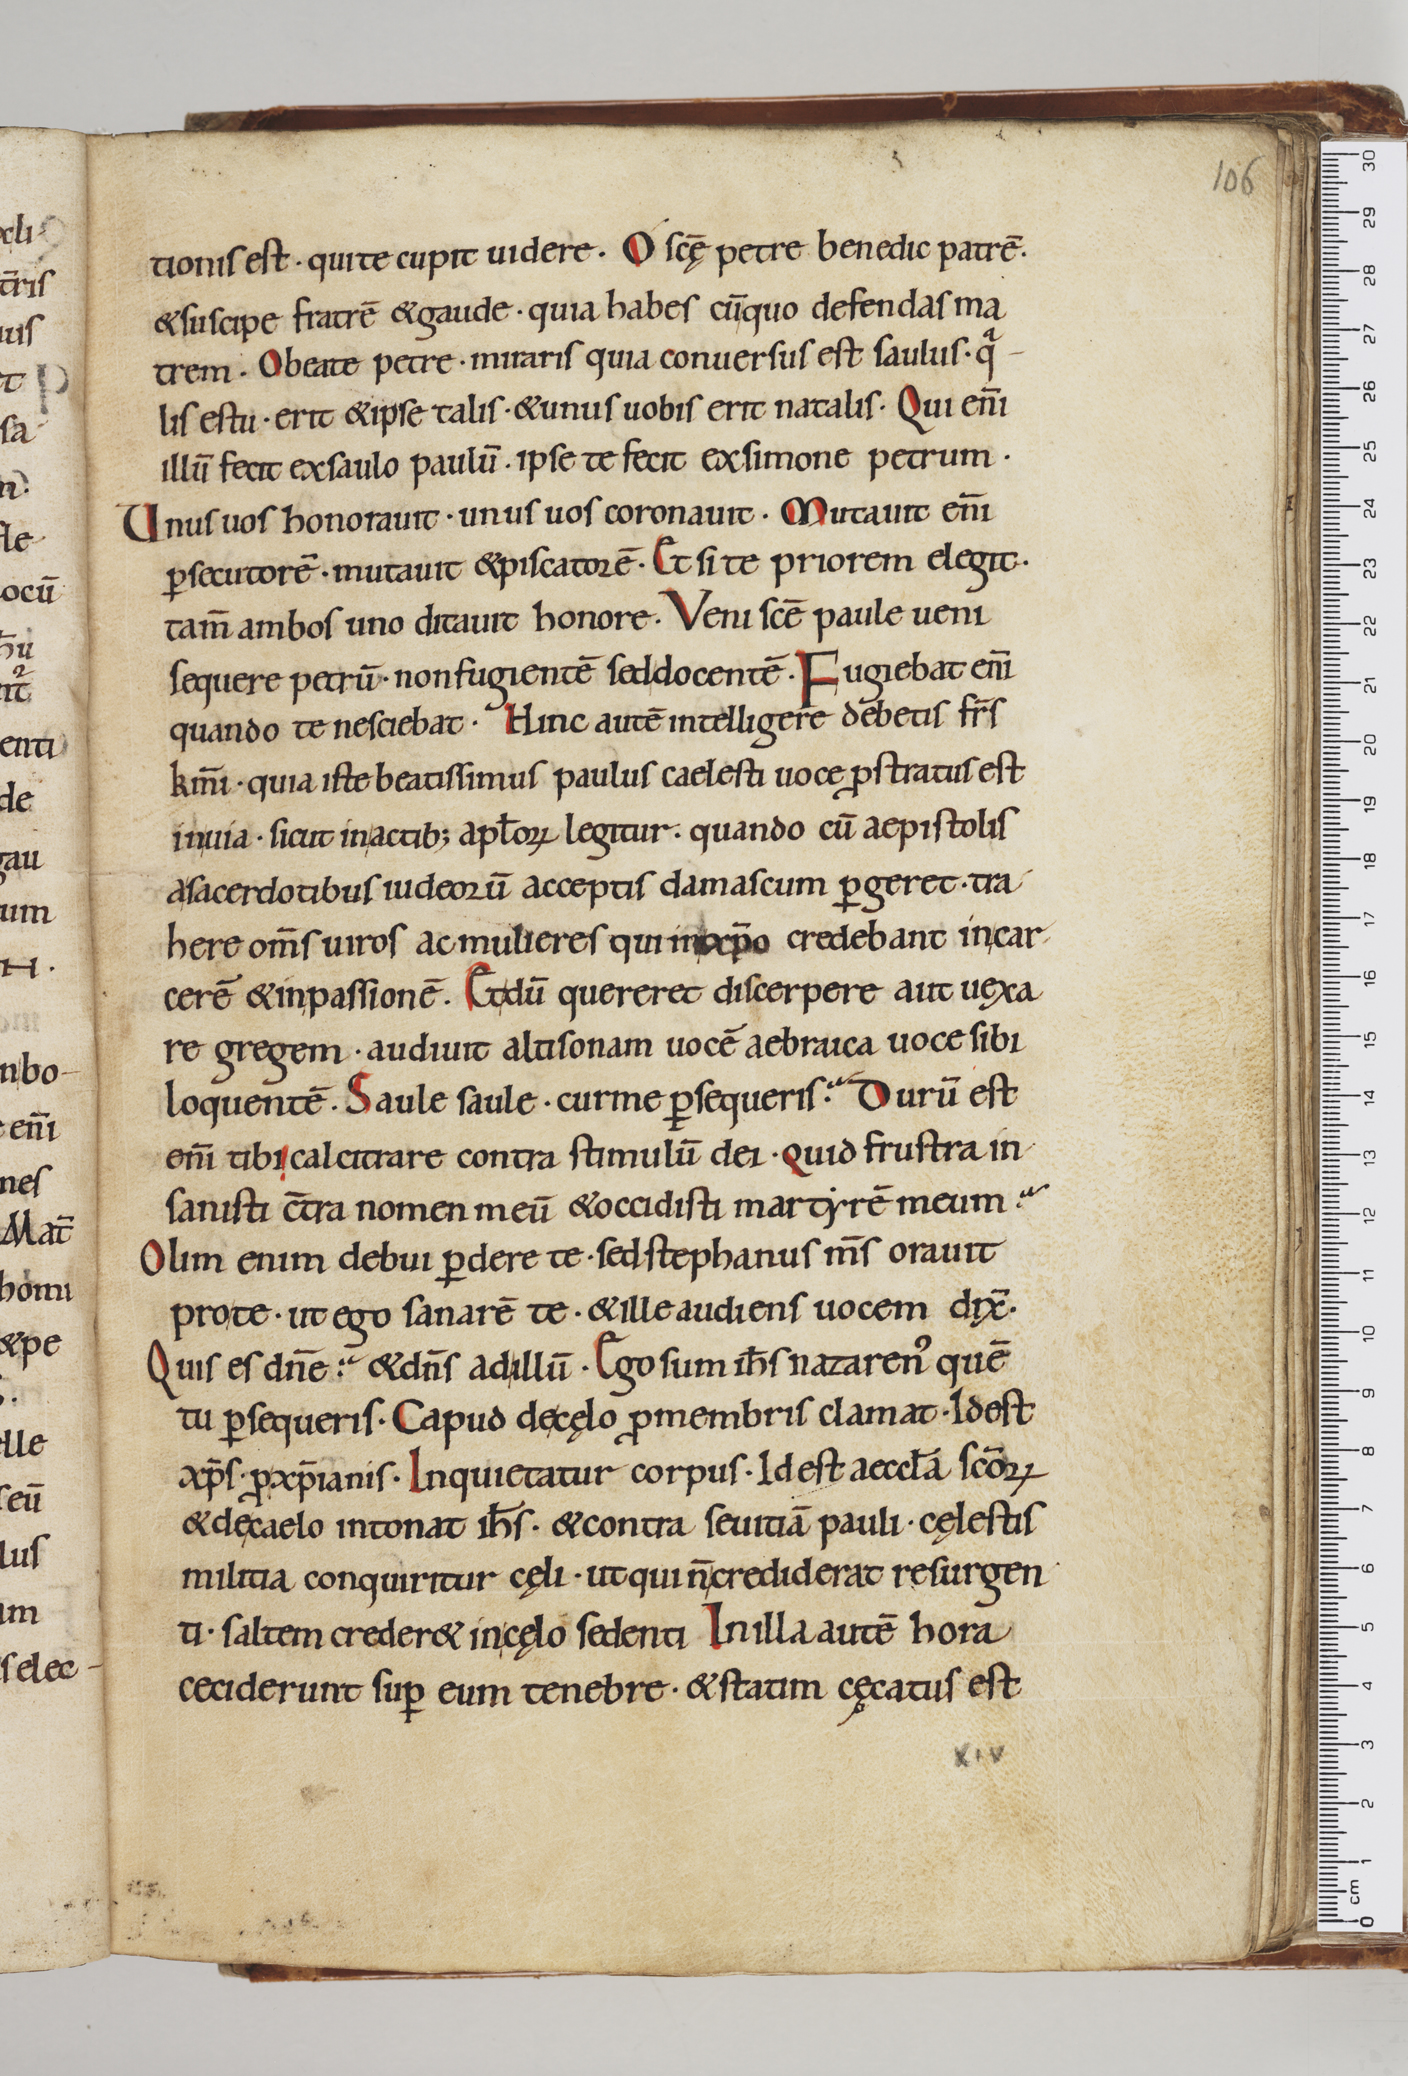 106
tionis est · qui te cupit uidere . O scę̄ petre benedic patrē .
& suscipe fratrē & gaude · quia habes cū quo defendas ma
trem . O beate petre · miraris quia conuersus est saulus · qͣ-
lis es tu · erit & ipse talis · & unus uobis erit natalis . Qui enī
illū fecit ex saulo paulū · ipse te fecit ex simone petrum .
Unus uos honorauit · unus uos coronauit . Mutauit enī
ꝑsecutorē · mutauit & piscatorē . Et si te priorem elegit .
tam̄ ambos uno ditauit honore . Veni scē paule ueni
sequere petrū · non fugientē sed docentē . Fugiebat enī
quando te nesciebat . Hinc autē intelligere debetis fr̄s
km̄i · quia iste beatissimus paulus caelesti uoce ꝓstratus est
in uia · sicut in actib; apl̄oꝝ legitur . quando cū aepistolis
a sacerdotibus iudeorū acceptis damascum ꝑgeret · tra
here om̄s uiros ac mulieres qui in xp̄o credebant in car
cerē & in passionē . Et dū quereret discerpere aut uexa
re gregem · audiuit altisonam uocē aebraica uoce sibi
loquentē . Saule saule · cur me ꝑsequeris ? Durū est
enī tibi calcitrare contra stimulū dei · quid frustra in
sanisti c̄tra nomen meū & occidisti martyrē meum ?
Olim enim debui ꝑdere te · sed stephanus m̄s orauit
pro te · ut ego sanarē te · & ille audiens uocem dix̄ .
Quis es dn̄e ? & dn̄s ad illū . Ego sum ih̄s nazarenꝰ quē
tu ꝑsequeris . Capud de cęlo ꝓ membris clamat · Id est
xp̄s · ꝓ xp̄ianis . Inquietatur corpus · Id est aeccl̄a scōꝝ
& de caelo intonat ih̄s · & contra seuitiā pauli · cęlestis
militia conquiritur cęli · ut qui n̄ crediderat resurgen
ti · saltem creder& in cęlo sedenti In illa autē hora
ceciderunt suꝑ eum tenebre · & statim cęcatus est
xiv